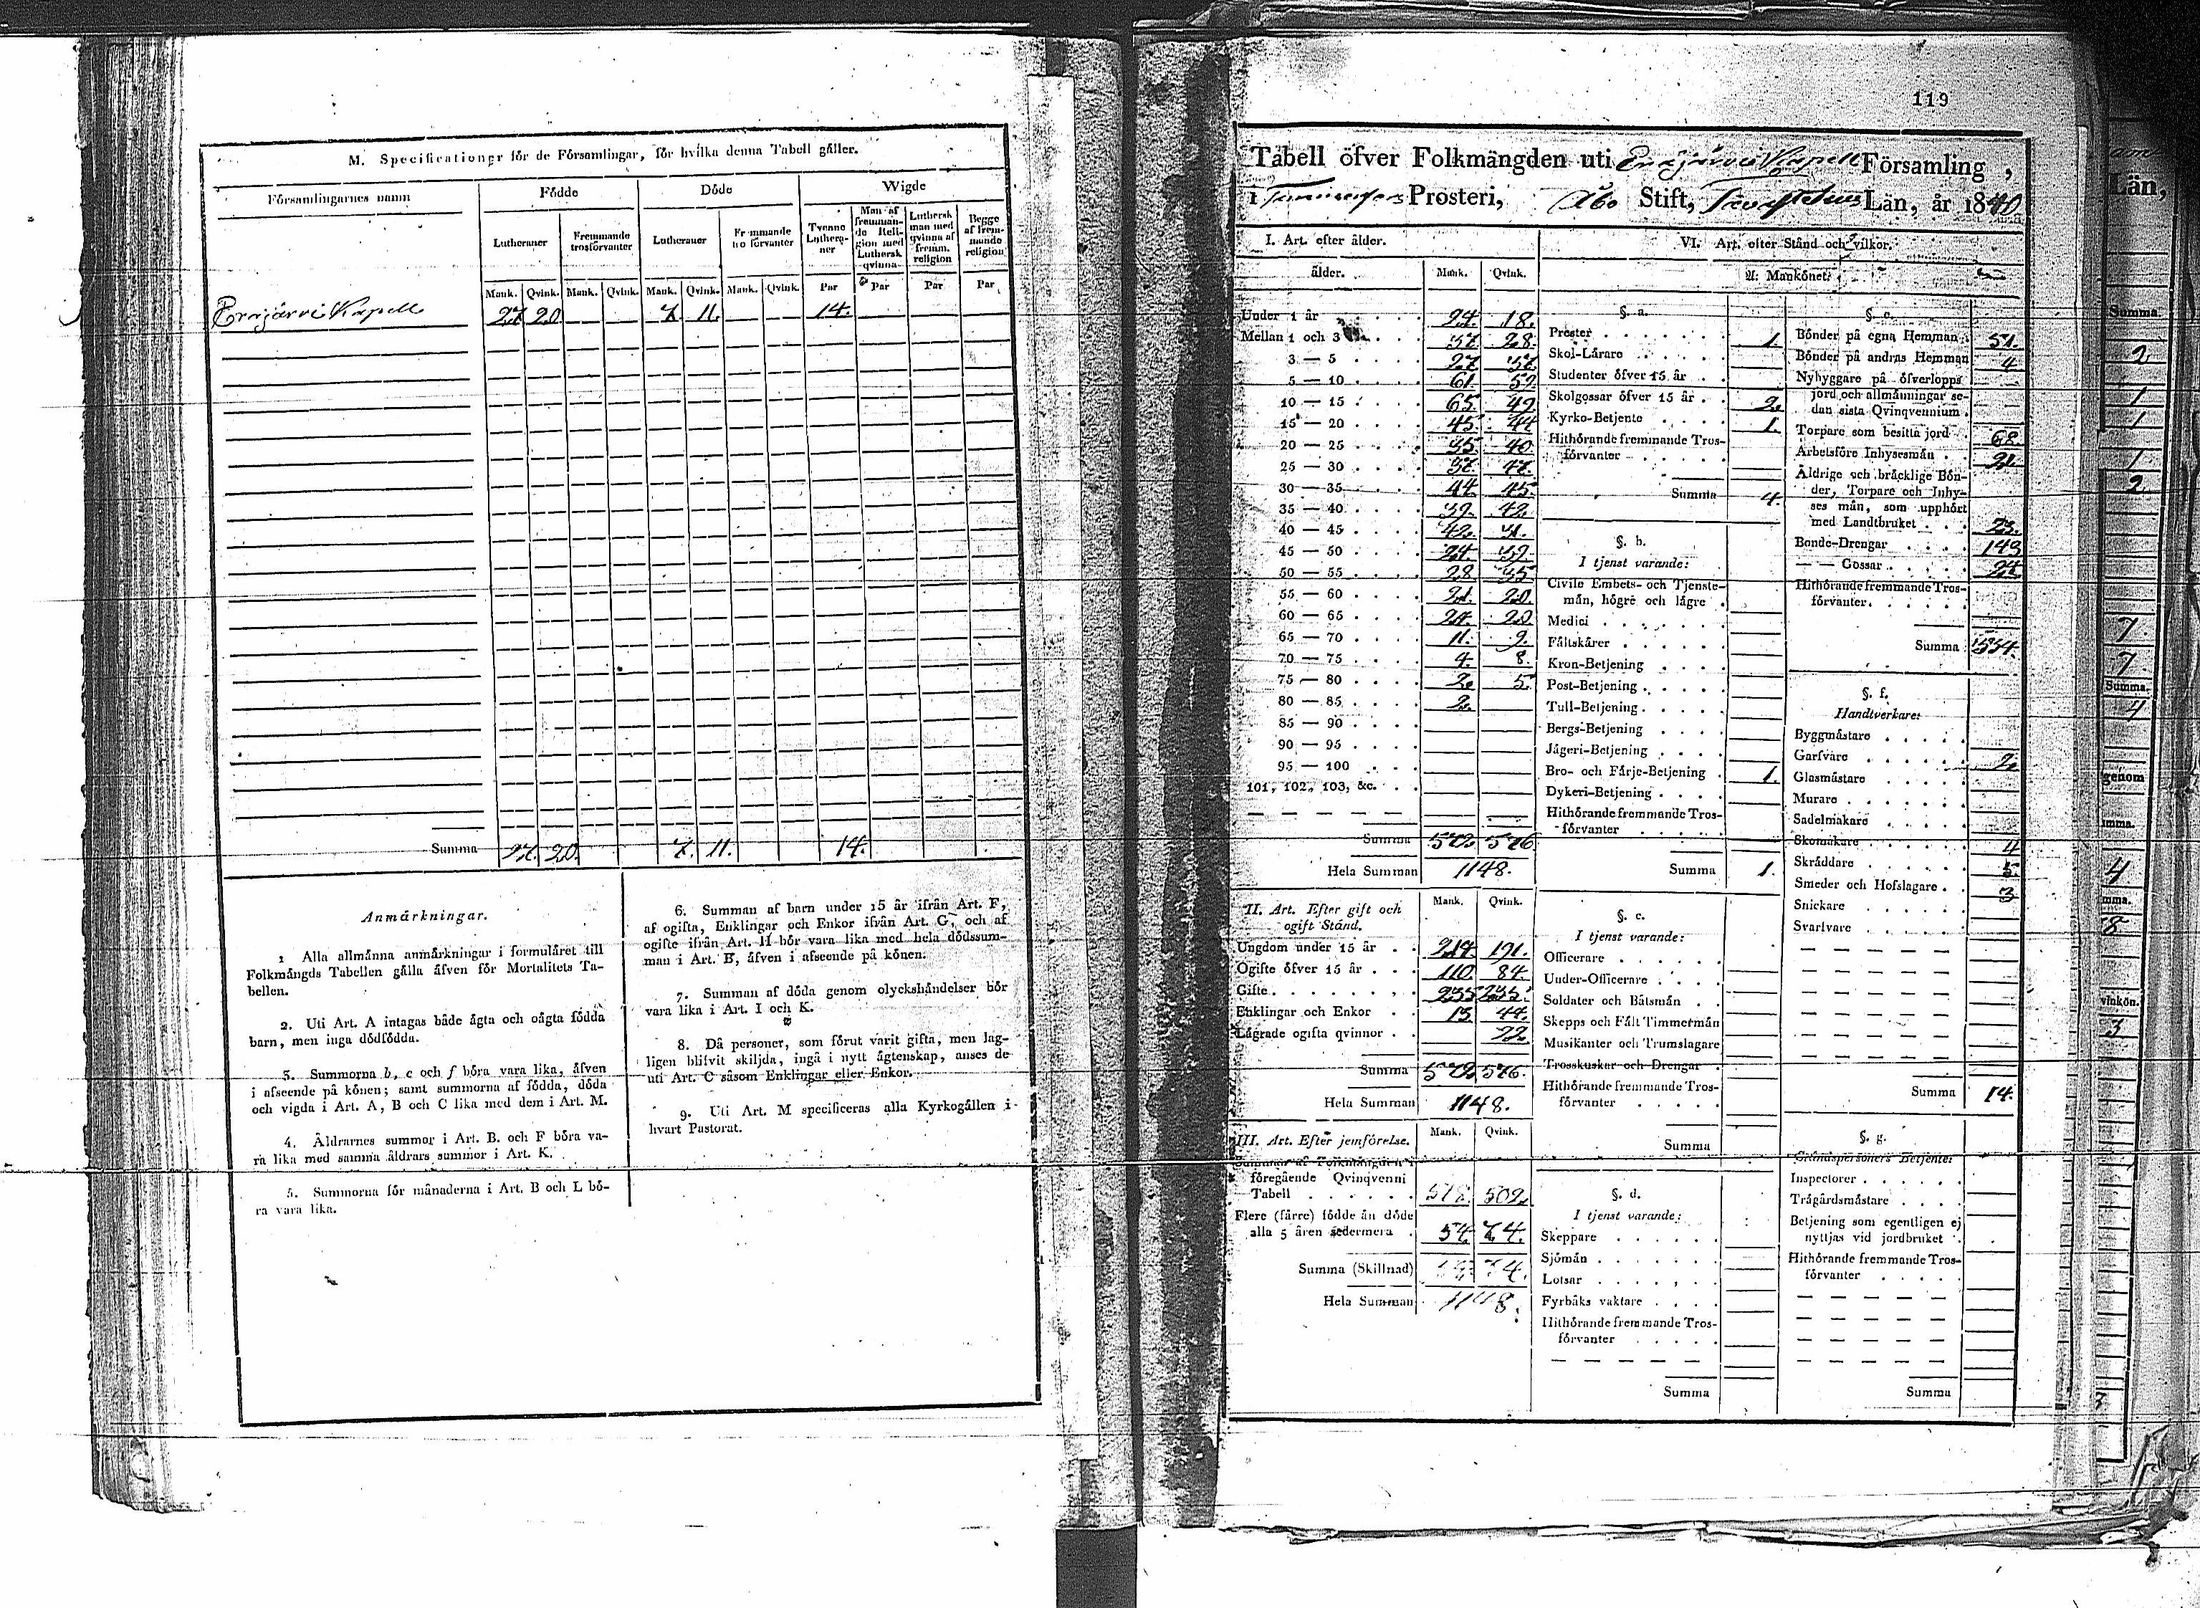 M. Specificationer för de Församlingar, för hvilka denna Tabell gäller.
Församlingarnes namn
Födde
Döde
Wigde
Lutheraner
Fremmande trosförvanter
Lutheraner
Fremmande trosförvanter
Tvenne Lutheraner
Man af fremmande Religion med Luthersk qvinna
Luthersk man med qvinna af fremm. religion
Begge af fremmande religion
Mank. Qvink. Mank. Qvink. Mank. Qvink. Mank. Qvink. Par Par Par Par
Eräjärvi Kapell 27 20 7 11. 14.
Summa 27. 20. 7. 11. 14.
Anmärkningar.
1 Alla allmänna anmärkningar i formuläret till
Folkmängds Tabellen gälla äfven för Mortalitets Ta-
bellen.
2. Uti Art. A intagas både ägta och oägta födda
barn, men inga dödfödda.
3. Summorna b, c och f böra vara lika, äfven
i afseende på könen; samt summorna af födda, döda
och vigda i Art. A, B och C lika med dem i Art. M.
4. Äldrarnes summor i Art. B. och F böra va-
ra lika med samma åldrars summor i Art. K.
5. Summorna för månaderna i Art. B och L bö-
ra vara lika.
6. Summan af barn under 15 år ifrån Art. F,
af ogifta, Enklingar och Enkor ifrån Art. G, och af
ogifte ifrån Art. H bör vara lika med hela dödssum-
man i Art. B, äfven i afseende på könen.
7. Summan af döda genom olyckshändelser bör
vara lika i Art. I och K.
8. Då personer, som förut varit gifta, men lag-
ligen blifvit skiljda, ingå i nytt ägtenskap, anses de
uti Art. C såsom Enklingar eller Enkor.
9. Uti Art. M specificeras alla Kyrkogällen i
hvart Pastorat.
119
Tabell öfver Folkmängden uti Eräjärvi Kapell Församling,
i Tammerfors Prosteri, Åbo Stift, Tavastehus Län, år 1840
I. Art. efter ålder.
ålder. Mank. Qvink.
Under 1 år 24. 18.
Mellan 1 och 3 37. 28.
3 — 5 27. 37.
5 — 10 61. 59.
10 — 15 65. 49.
15 — 20 45. 44
20 — 25 35. 40
25 — 30 37. 47.
30 — 35 44. 45.
35 — 40 39. 42.
40 — 45 42. 31.
45 — 50 24. 39.
50 — 55 28. 35.
55 — 60 21. 20.
60 — 65 24. 20
65 — 70 11. 9.
70 — 75 4. 8.
75 — 80 2. 5.
80 — 85 2.
85 — 90
90 — 95
95 — 100
101, 102, 103, &c.
Summa 572. 576
Hela Summan 1148.
II. Art. Efter gift och ogift Stånd. Mank. Qvink.
Ungdom under 15 år 214. 191.
Ogifte öfver 15 år 110. 84.
Gifte 235 235.
Enklingar och Enkor 13. 44.
Lägrade ogifta qvinnor 22.
Summa 572. 576.
Hela Summan 1148.
III. Art. Efter jemförelse. Mank. Qvink.
Summan af Folkmängden i
föregående Qvinqvenni
Tabell 518. 502.
Flere (färre) födde än döde
alla 5 åren sedermera 54. 74.
Summa (Skillnad) 74.
Hela Summan 1148.
VI. Art. efter Stånd och vilkor.
A: Mankönet:
§. a.
Prester 1.
Skol-Lärare
Studenter öfver 15 år
Skolgossar öfver 15 år 2.
Kyrko-Betjente 1.
Hithörande fremmande Tros-
förvanter
Summa 4.
§. b.
I tjenst varande:
Civile Embets- och Tjenste-
män, högre och lägre
Medici
Fältskärer
Kron-Betjening
Post-Betjening
Tull-Betjening
Bergs-Betjening
Jägeri-Betjening
Bro- och Färje-Betjening 1.
Dykeri-Betjening
Hithörande fremmande Tros-
förvanter
Summa 1.
§. c.
I tjenst varande:
Officerare
Under-Officerare
Soldater och Båtsmän
Skepps och Fält Timmermän
Musikanter och Trumslagare
Trosskuskar och Drengar
Hithörande fremmande Tros-
förvanter
Summa
§. d.
I tjenst varande:
Skeppare
Sjömän
Lotsar
Fyrbåks vaktare
Hithörande fremmande Tros-
förvanter
Summa
§. e.
Bönder på egna Hemman 51.
Bönder på andras Hemman 4
Nybyggare på öfverlopps
jord och allmänningar se-
dan sista Qvinqvennium
Torpare som besitta jord 68.
Arbetsföre Inhysesmän 21.
Äldrige och bräcklige Bön-
der, Torpare och Inhy-
ses män, som upphört
med Landtbruket 23.
Bonde-Drengar 143
— — Gossar 24
Hithörande fremmande Tros-
förvanter
Summa 334.
§. f.
Handtverkare:
Byggmästare
Garfvare 2.
Glasmästare
Murare
Sadelmakare
Skomakare 4
Skräddare 5.
Smeder och Hofslagare 3
Snickare
Svarfvare
Summa 14.
§. g.
Ståndspersoners Betjente:
Inspectorer
Trägårdsmästare
Betjening som egentligen ej
nyttjas vid jordbruket
Hithörande fremmande Tros-
förvanter
Summa
Län,
Summa
2
1
1
1
2
7
7
Summa.
4
genom
4
8
3